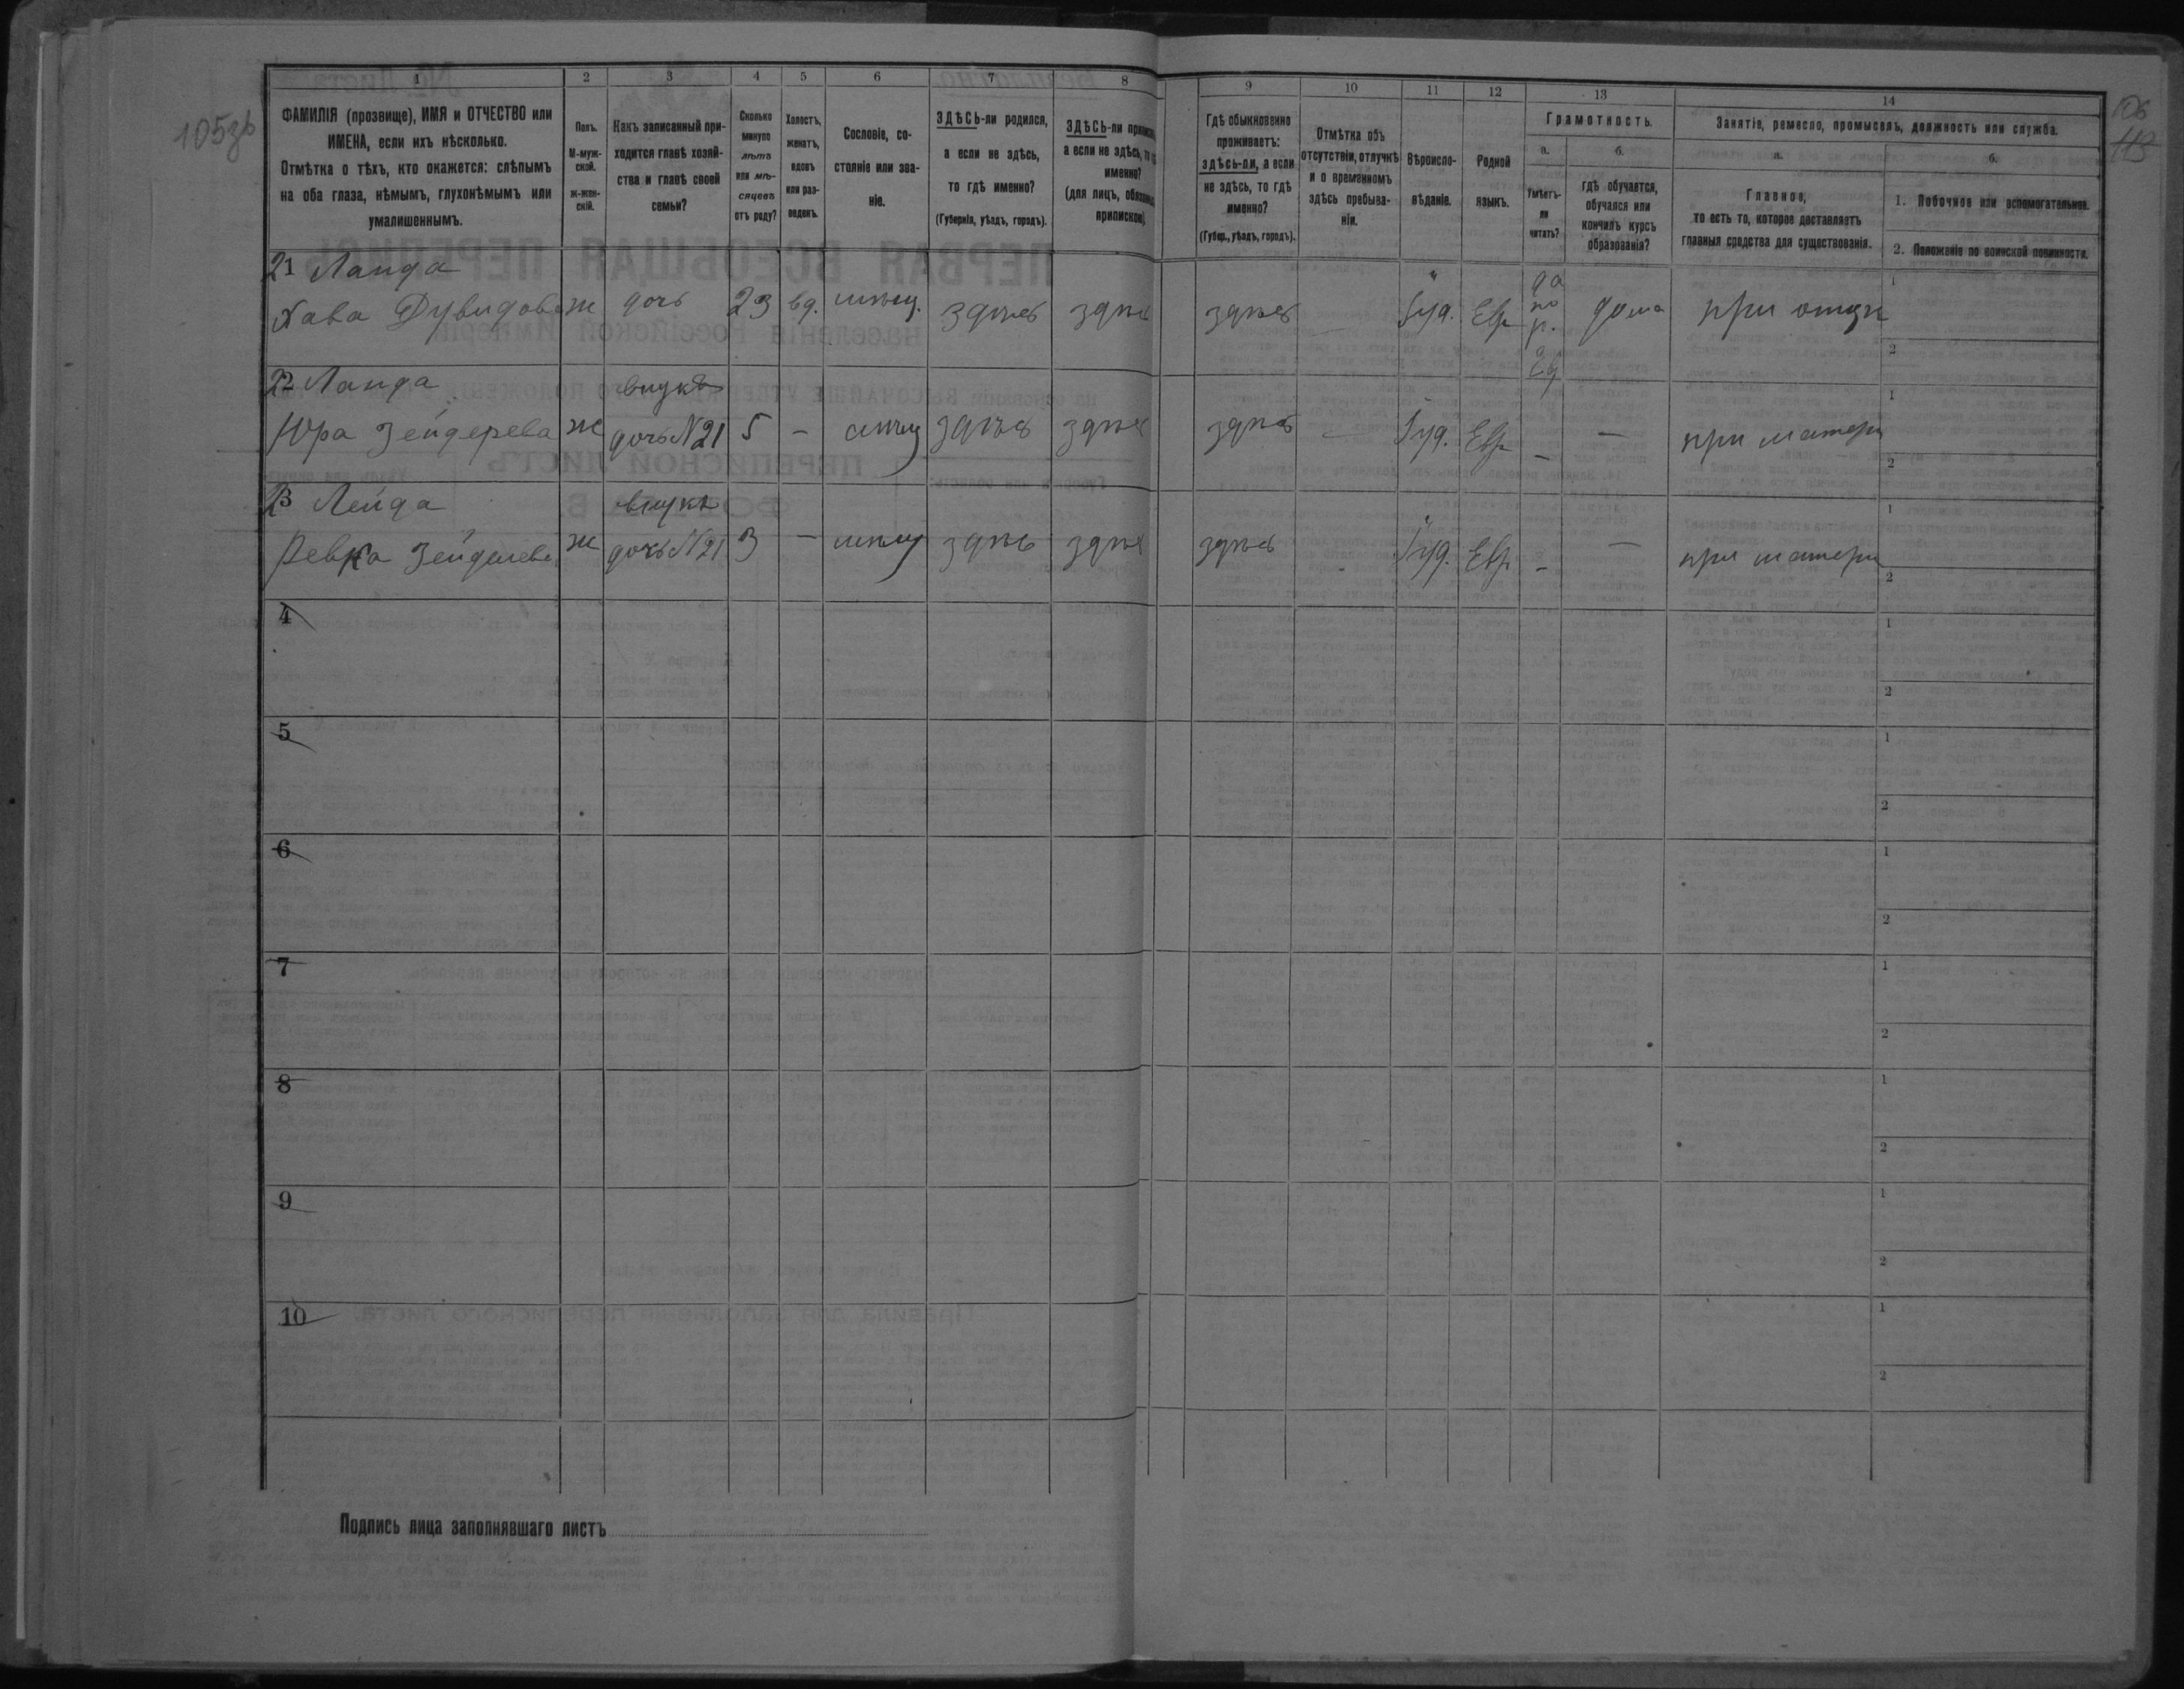 105зв
106
113
1
2
3
4
5
6
7
8
9
10
11
12
13
14
ФАМИЛІЯ (прозвище), ИМЯ и ОТЧЕСТВО или
ИМЕНА, если ихъ нѣсколько.
Отмѣтка о тѣхъ, кто окажется: слѣпымъ
на оба глаза, нѣмымъ, глухонѣмымъ или
умалишеннымъ.
Полъ.
М-муж-
ской.
ж-жен-
скій.
Какъ записанный при-
ходится главѣ хозяй-
ства и главѣ своей
семьи?
Сколько
минуло
лѣтъ
или мѣ-
сяцевъ
отъ роду?
Холостъ,
женатъ,
вдовъ
или раз-
веденъ.
Сословіе, со-
стояніе или зва-
ніе.
ЗДѢСЬ-ли родился,
а если не здѣсь,
то гдѣ именно?
(Губернія, уѣздъ, городъ).
ЗДѢСЬ-ли
а если не здѣсь,
именно?
(для лицъ,
припискою)
Гдѣ обыкновенно
проживаетъ:
здѣсь-ли, а если
не здѣсь, то гдѣ
именно?
(Губер., уѣздъ, городъ).
Отмѣтка объ
отсутствіи, отлучкѣ
и о временномъ
здѣсь пребыва-
ніи.
Вѣроиспо-
вѣданіе.
Родной
языкъ.
Грамотность.
а.
б.
Умѣетъ-
ли
читать?
гдѣ обучается,
обучался или
кончилъ курсъ
образованія?
Занятіе, ремесло, промыселъ, должность или служба.
а.
б.
Главное,
то есть то, которое доставляетъ
главныя средства для существованія.
1. Побочное или вспомогательное.
2. Положеніе по воинской повинности.
21 Ланда
Хава Дувидова ж дочь 23 вд. мѣщ. здѣсь здѣсь здѣсь — Іуд. Евр да по р. дома при отцѣ
1
2
22 Ланда внука
Юра Зейдерева ж дочь N21 5 - мѣщ здѣсь здѣсь здѣсь — Іуд. Евр - — при матери
1
2
23 Лейда внука
Ревка Зейделева ж дочь N21 3 - мѣщ здѣсь здѣсь здѣсь - Іуд. Евр - — при матери
1
2
4
1
2
5
1
2
6
1
2
7
1
2
8
1
2
9
1
2
10
1
2
Подпись лица заполнявшаго листъ